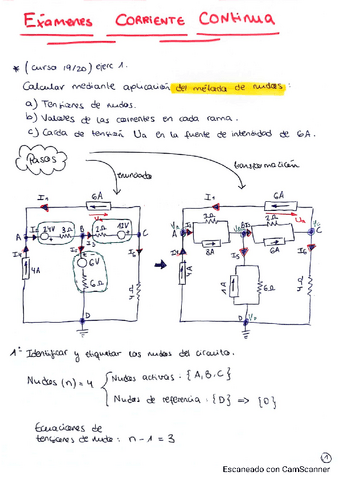 Exámenes CORRIENTE CONTINUA
* (curso 19/20) ejerc 1.
Calcular mediante aplicación del método de nudos:
a) Tensiones de nudos.
b) Valores de las corrientes en cada rama.
c) Caída de tensión Ua en la fuente de intensidad de 6A.
Pasos
enunciado
transformación
I1
6A
Ua
A
24V
3Ω
B
2Ω
12V
C
I3
I6
6V
6Ω
4A
D
I1
6A
Ua
A
3Ω
8A
2Ω
6A
C
I5
I6
1A
6Ω
4A
D
1º Identificar y etiquetar los nudos del circuito.
Nudos (n) = 4
Nudos activos: {A, B, C}
Nudos de referencia: {D} => {0}
Ecuaciones de
tensiones de nudo: n - 1 = 3
1
Escaneado con CamScanner